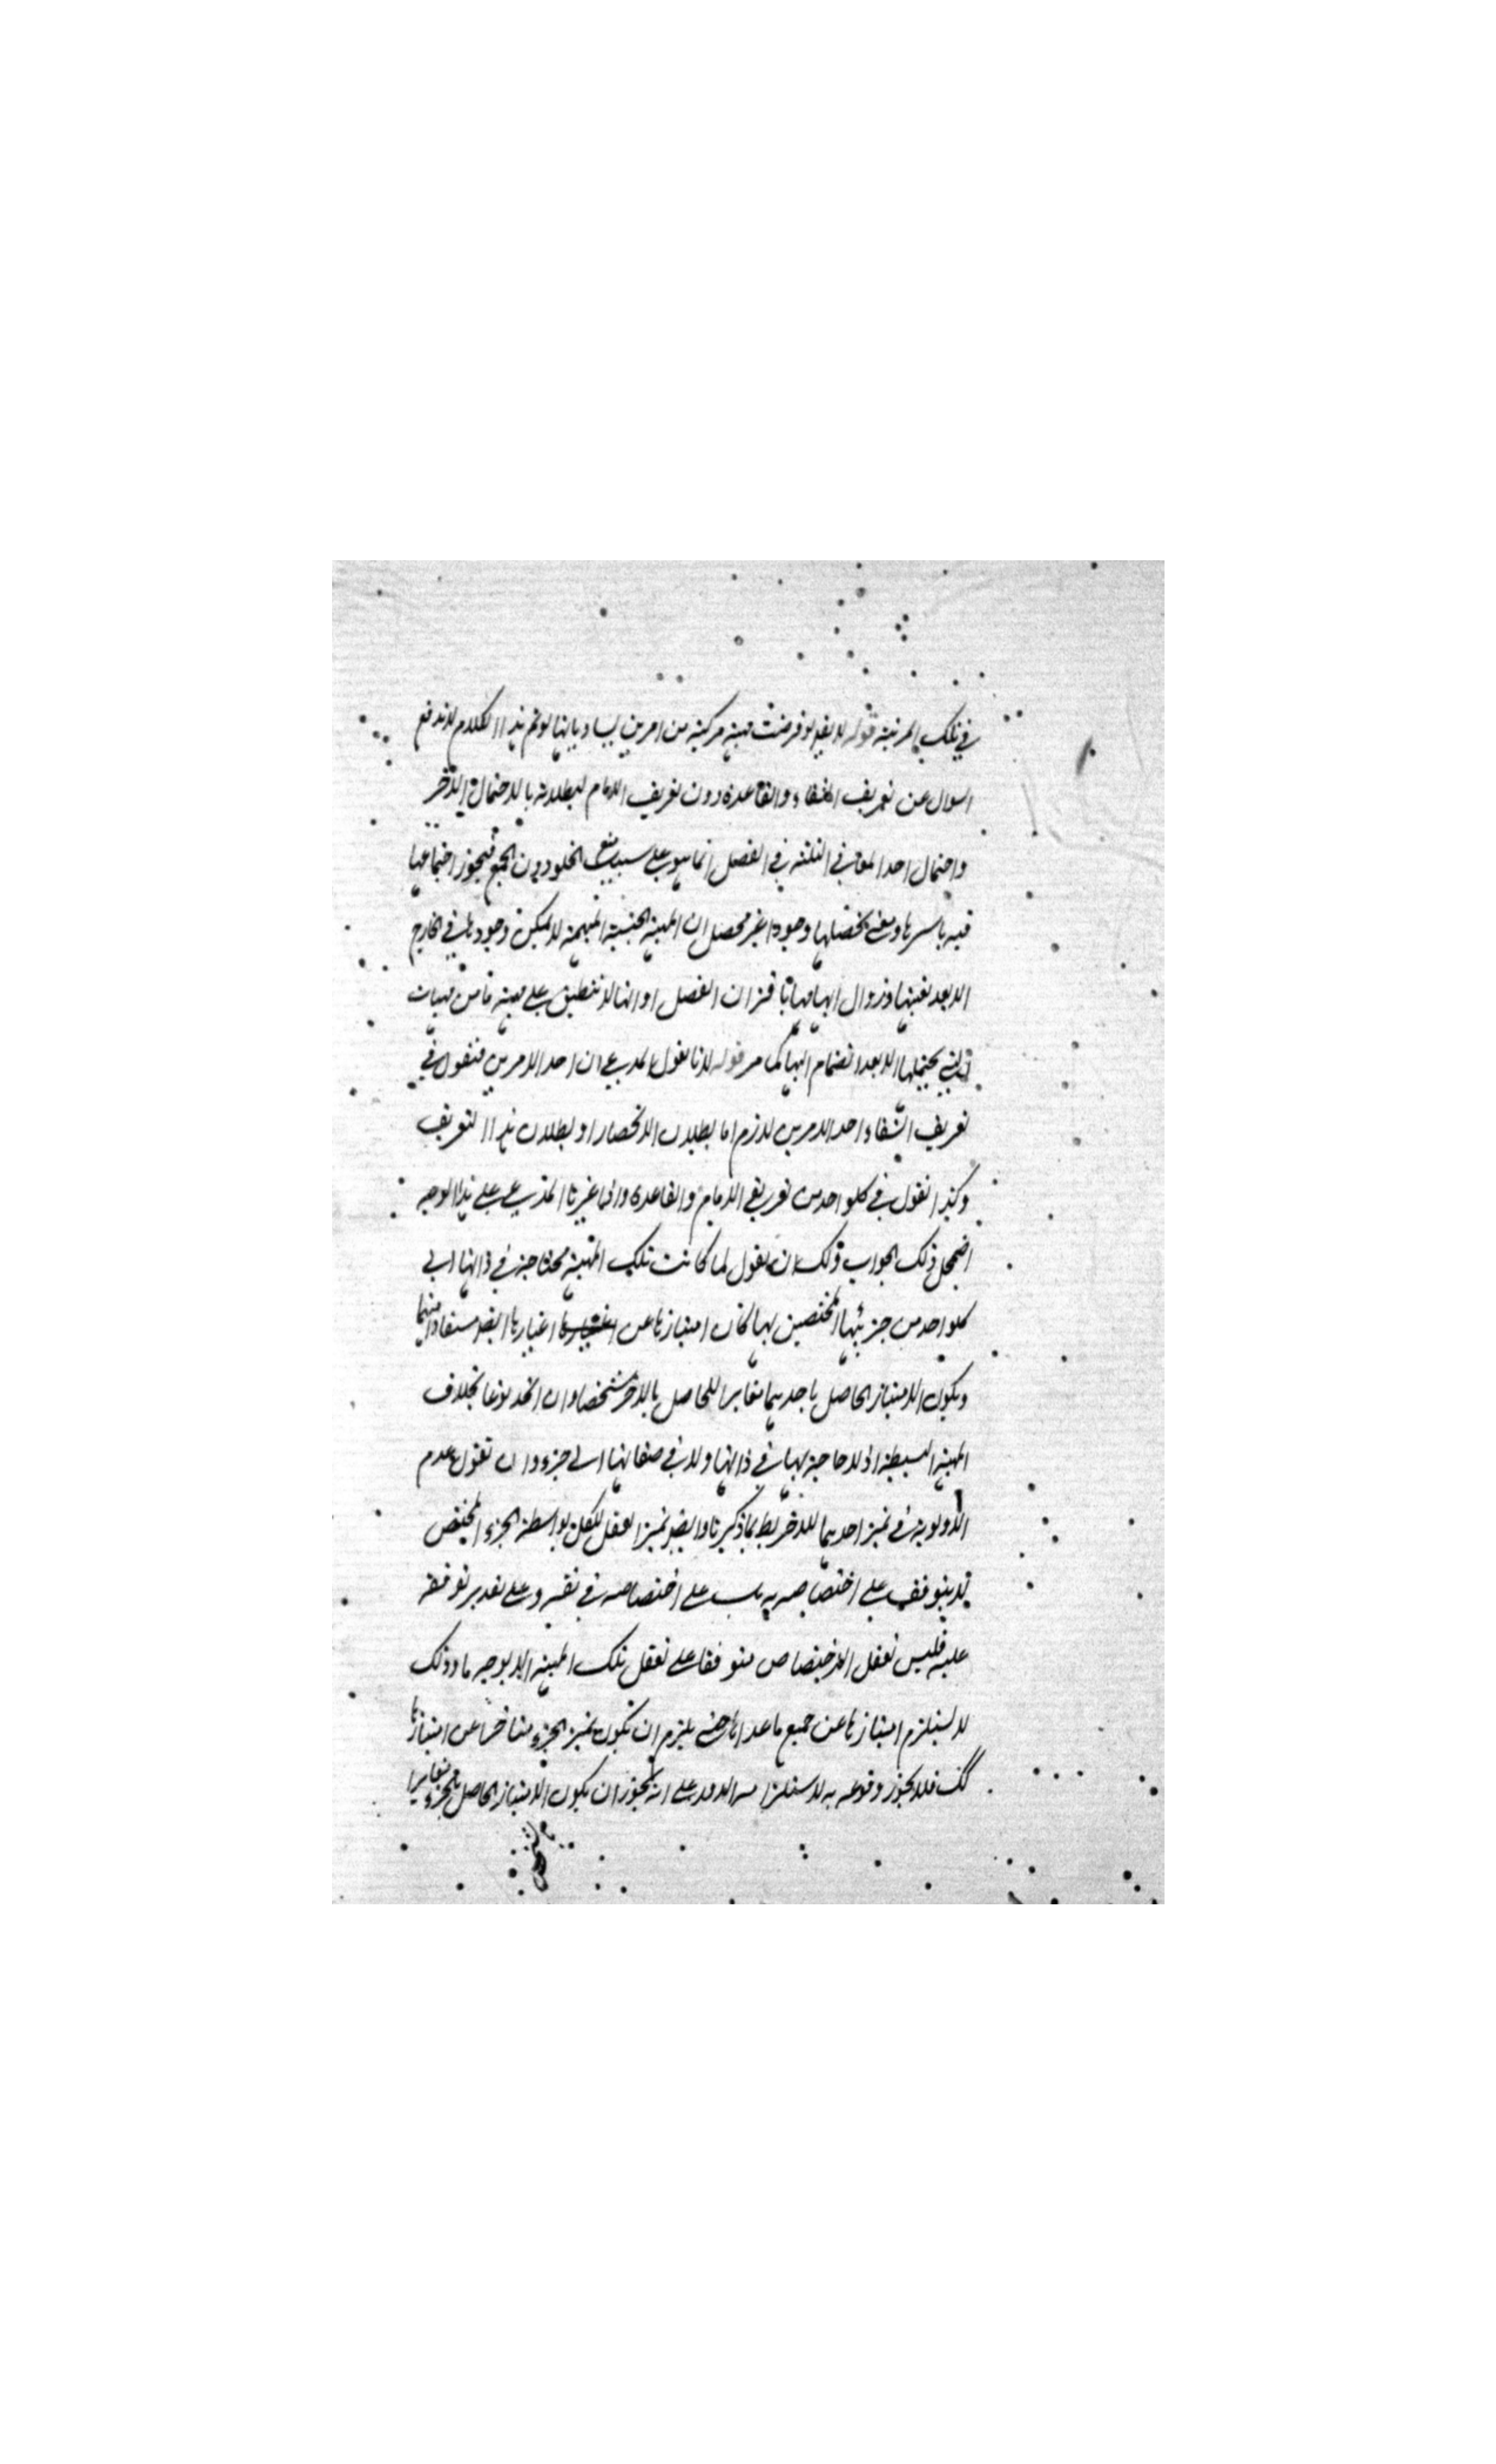 في تلك المرتبة قوله لا يقم لو فرضت مهية مركبة من امرين يساويانها لو تم هذا الكلام لاندفع
السوال عن تعريف الشفاء والقاعدة دون تعريف الامام لبطلانه بالاحتمال الاخر
واحتمال احد المعاني الثلثة في الفصل انما هو على سبيل منع الخلو دون الجمع فيجوز اجتماعها
فيه باسرها ومعنى تحصلها وجودا غير محصل ان المهية الجنسية المبهمة لا يمكن وجودها في الخارج
الا بعد تعينها وزوال ابهامها باقتران الفصل او انها لا تنطبق على مهية ما من مهيات
التي يحتملها الا بعد انضمام اليها كما مر قوله لانا نقول المدعى ان احد الامرين فنقول في
تعريف الشفاء احد الامرين لازم اما بطلان الانحصار او بطلان هذا التعريف
وكذا نقول في كل واحد من تعريفي الامام والقاعدة وانما غيرنا المدعى على هذا الوجه
اضمحل ذلك الجواب ولك ان نقول لما كانت تلك المهية محتاجة في ذاتها الى
كل واحد من جزئيها المختصين بها كان امتيازها عن اغيارها ايضا مستفادا منهما
ويكون الامتياز الحاصل باحدهما مغايرا للحاصل بالاخر شخصا وان اتحد نوعا بخلاف
المهية البسيطة اذ لا حاجة بها في ذاتها ولا في صفاتها الى جزء وان تقول عدم
الاولوية في تميز احدهما للاخر بط بما ذكرنا وايضا تميز العقل للكل بواسطة الجزء المختص
لا يتوقف على اختصاصه به بل على اختصاصه في نفسه وعلى تقدير توقفه
عليه فليس تعقل الاختصاص متوقفا على تعقل تلك المهية الا بوجه ما وذلك
لا يستلزم امتيازها عن جميع ماعداها حتى يلزم ان يكون تميز الجزء متاخرا عن امتيازها
كك فلا يجوز وقوعه به لاستلزامه الدور على انه يجوز ان يكون الامتياز الحاصل بالجزء مغايرا